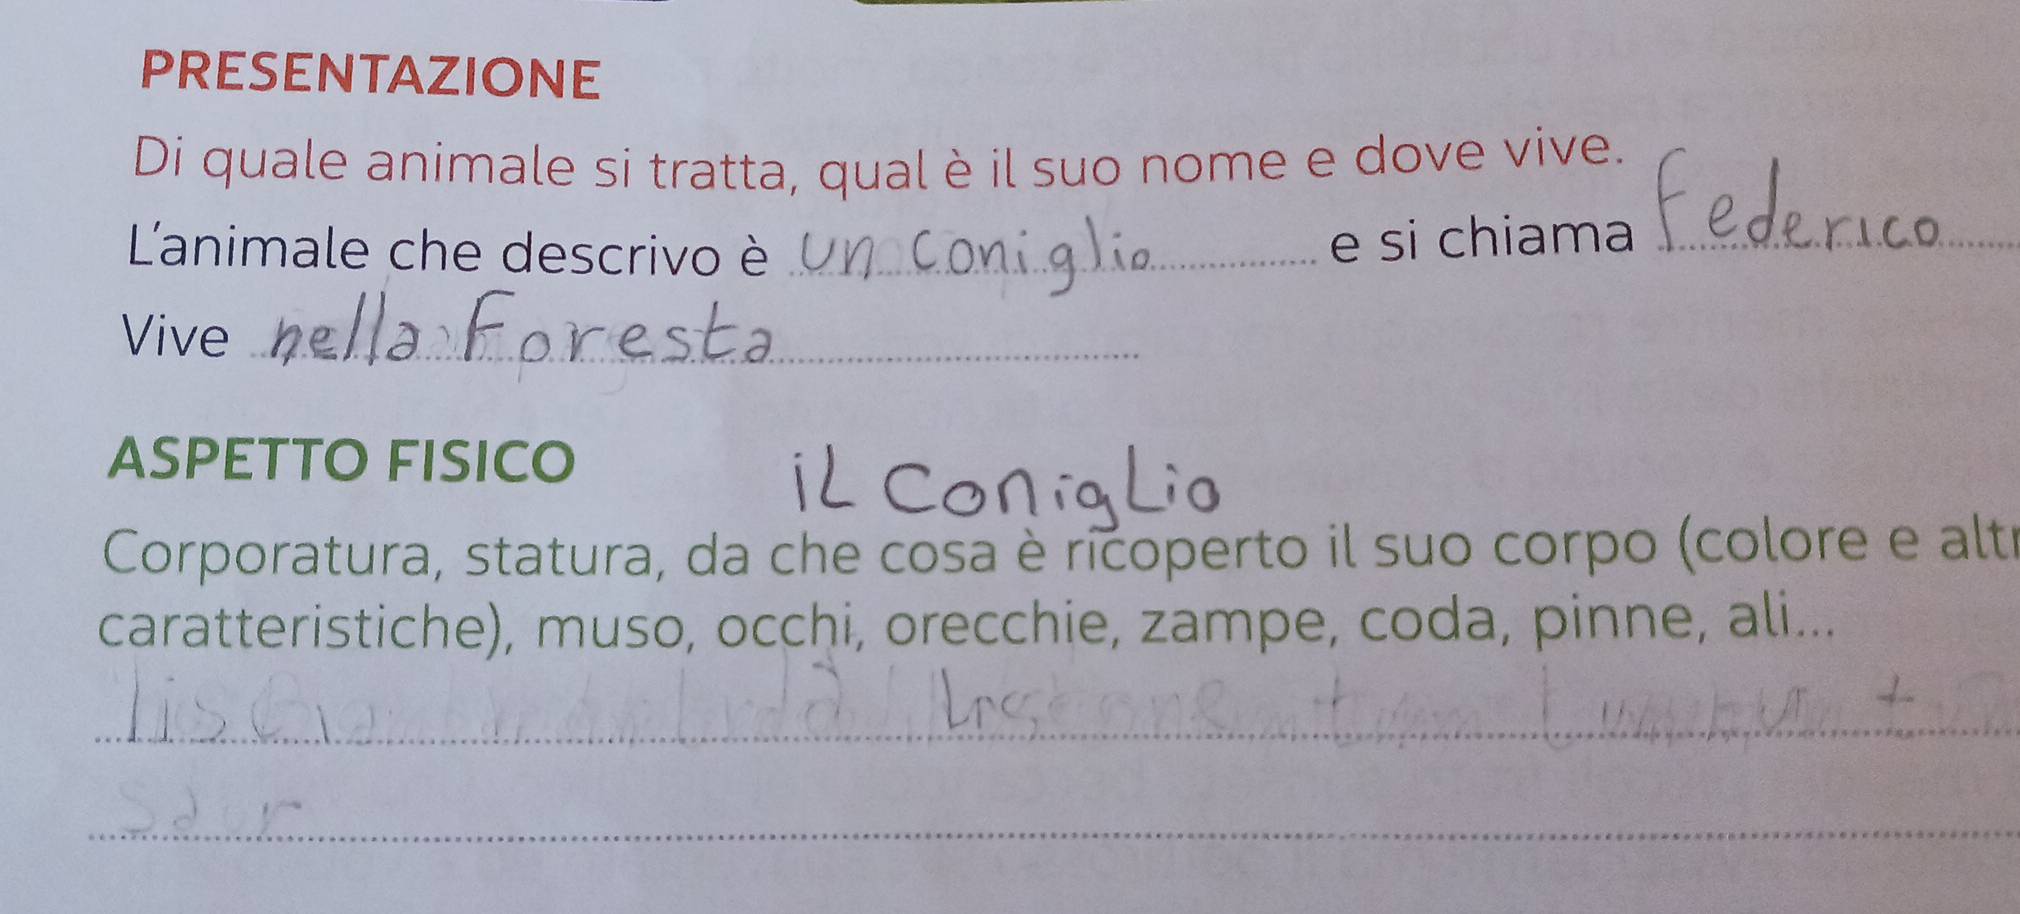 PRESENTAZIONE
Di quale animale si tratta, qual è il suo nome e dove vive.
L'animale che descrivo è un coniglio e si chiama Federico
Vive nella Foresta
ASPETTO FISICO
iL ConigLio
Corporatura, statura, da che cosa è ricoperto il suo corpo (colore e altr
caratteristiche), muso, occhi, orecchie, zampe, coda, pinne, ali...